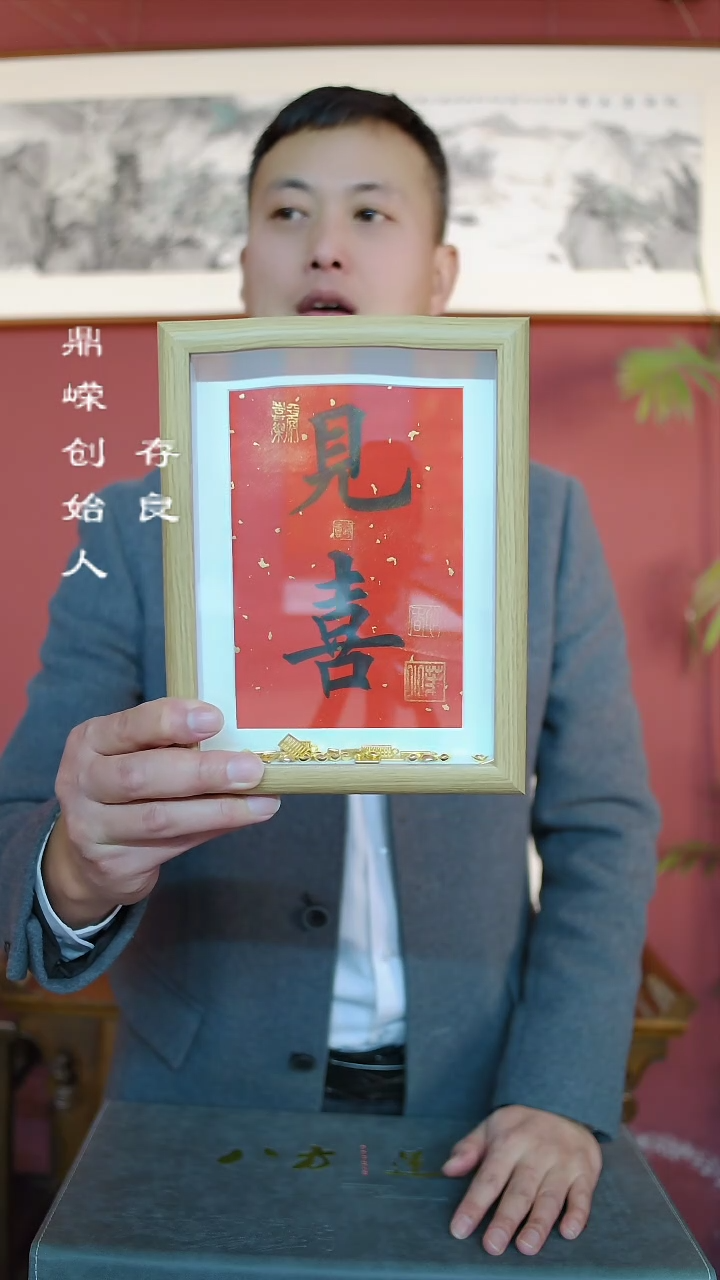 鼎嵘创始人
存良
見喜
八方